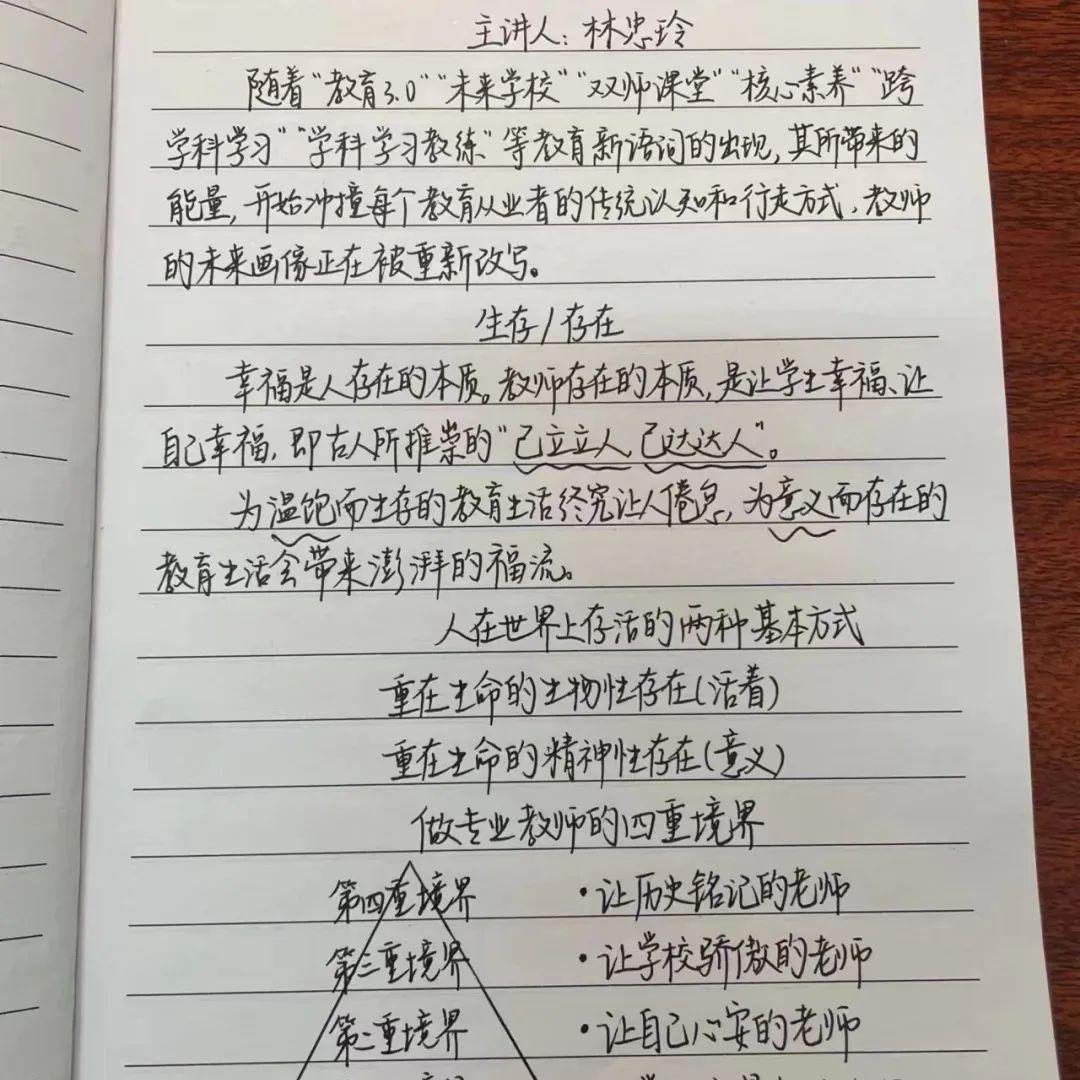 主讲人：林忠玲
随着“教育3.0”“未来学校”“双师课堂”“核心素养”“跨
学科学习”“学科学习教练”等教育新语词的出现，其所带来的
能量，开始冲撞每个教育从业者的传统认知和行走方式，教师
的未来画像正在被重新改写。
生存/存在
幸福是人存在的本质。教师存在的本质，是让学生幸福、让
自己幸福，即古人所推崇的“己立立人，己达达人”。
为温饱而生存的教育生活终究让人倦怠，为意义而存在的
教育生活会带来澎湃的福流。
人在世界上存活的两种基本方式
重在生命的生物性存在（活着）
重在生命的精神性存在（意义）
做专业教师的四重境界
第四重境界 ·让历史铭记的老师
第三重境界 ·让学校骄傲的老师
第二重境界 ·让自己心安的老师